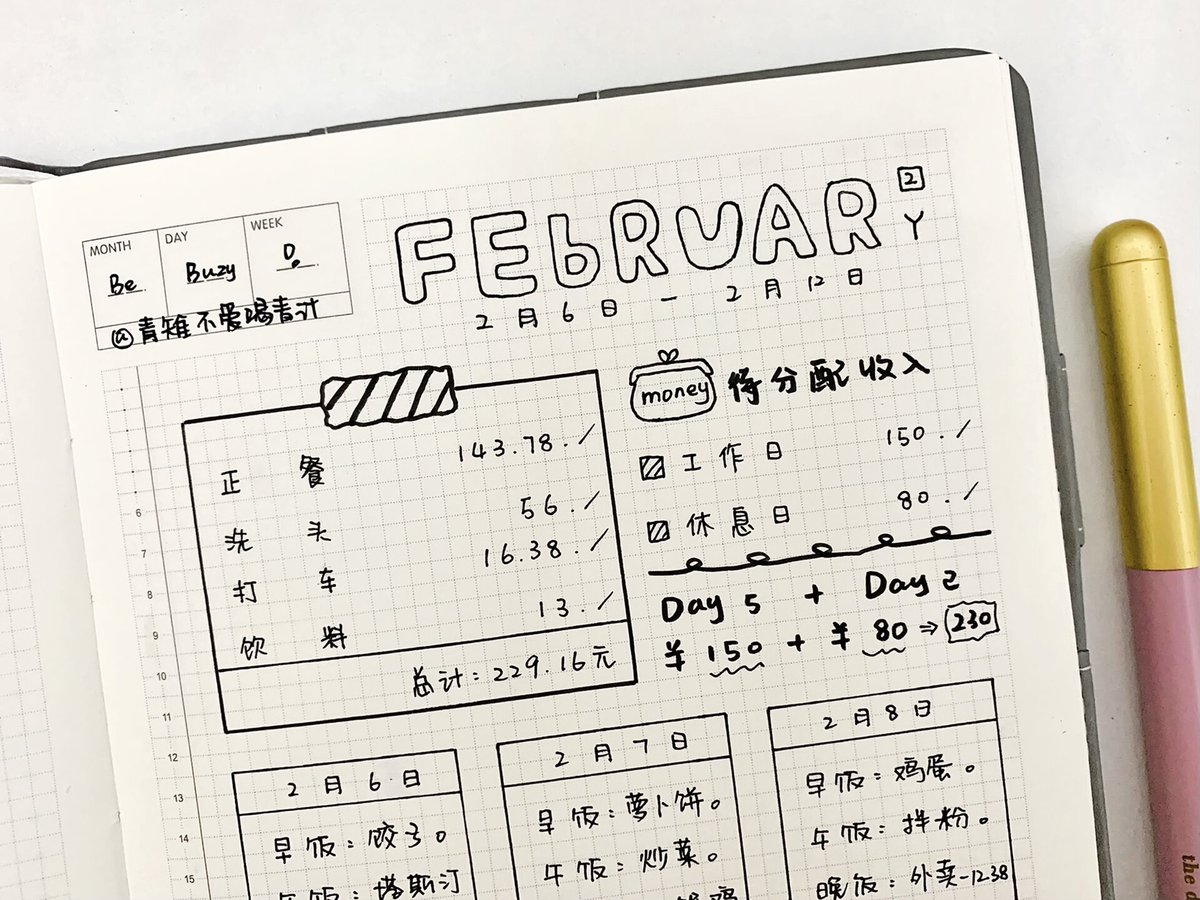 MONTH DAY WEEK
Be. Buzy D.
@青雉不爱喝青汁
FEbRUAR
2
Y
2月6日 - 2月12日
正餐 143.78./
洗头 56./
打车 16.38./
饮料 13./
总计:229.16元
money 待分配收入
工作日 150./
休息日 80./
Day 5 + Day 2
¥150 + ¥80 ⇒ 230
6
7
8
9
10
11
12
13
14
15
2月6日
早饭:饺子。
午饭:塔斯汀
2月7日
早饭:萝卜饼。
午饭:炒菜。
2月8日
早饭:鸡蛋。
午饭:拌粉。
晚饭:外卖-12.38